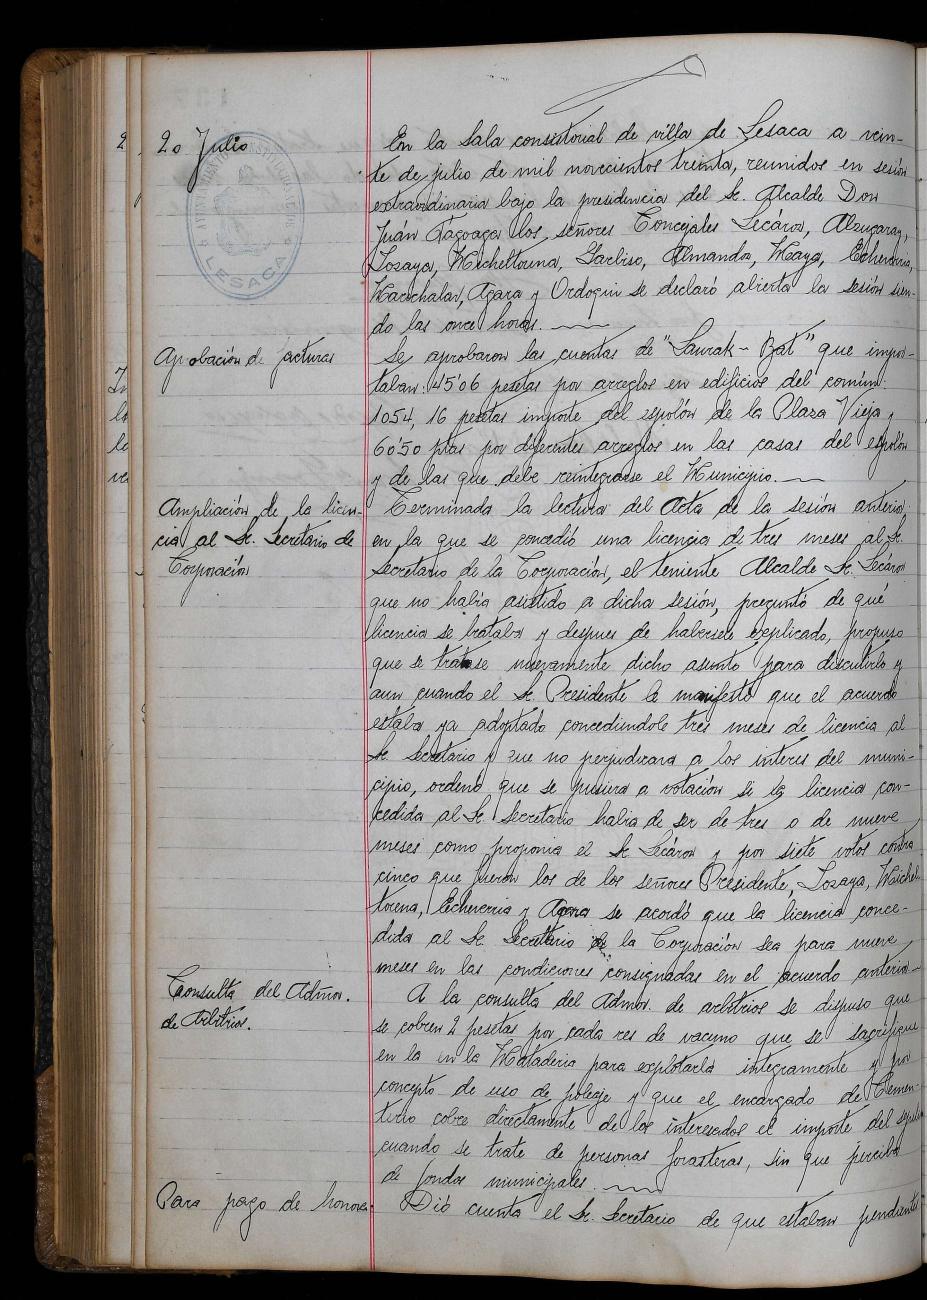 20 Julio
AYUNTAMIENTO CONSTITUCIONAL DE
LESACA
En la Sala consistorial de villa de Lesaca a vein-
te de julio de mil novecientos treinta, reunidos en sesión
extraordinaria bajo la presidencia del Sr. Alcalde Don
Juan Tagoaga los señores Concejales Lecároz, Alzugaray,
Lozaya, Micheltorena, Garbiso, Almandoz, Maya, Echeverria,
Marichalar, Agara y Ordoqui se declaró abierta la sesión sien-
do las once horas.
Aprobación de facturas
Se aprobaron las cuentas de "Laurak-Bat" que impor-
taban: 45'06 pesetas por arreglos en edificios del común:
1054,16 pesetas importe del espolón de la Plaza Vieja y
60'50 ptas por diferentes arreglos en las casas del espolón
y de las que debe reintegrarse el Municipio.
Ampliación de la licen-
cia al Sr. Secretario de
Corporación
Terminada la lectura del Acta de la sesión anterior
en la que se concedió una licencia de tres meses al Sr.
Secretario de la Corporación, el teniente Alcalde Sr. Lecároz
que no había asistido a dicha sesión, preguntó de qué
licencia se trataba y despues de habersele explicado, propuso
que se tratase nuevamente dicho asunto para discutirlo y
aun cuando el Sr. Presidente le manifestó que el acuerdo
estaba ya adoptado concediendole tres meses de licencia al
Sr. Secretario y que no perjudicara a los interes del muni-
cipio, ordenó que se pusiera a votación si la licencia con-
cedida al Sr. Secretario habia de ser de tres o de nueve
meses como proponia el Sr. Lecároz y por siete votos contra
cinco que fueron los de los señores Presidente, Lozaya, Michel
torena, Echeverria y Agara se acordó que la licencia conce-
dida al Sr. Secretario de la Corporación sea para nueve
meses en las condiciones consignadas en el acuerdo anterior
Consulta del Admor.
de Arbitrios.
A la consulta del Admor. de arbitrios se dispuso que
se cobren 2 pesetas por cada res de vacuno que se sacrifique
en la in la Mataderia para explotarla integramente y por
concepto de uso de poleaje y que el encargado de Cemen-
terio cobre directamente de los interesados el importe del
cuando se trate de personas forasteras, sin que perciba
de fondos municipales.
Para pago de honora-
Dió cuenta el Sr. Secretario de que estaban pendientes